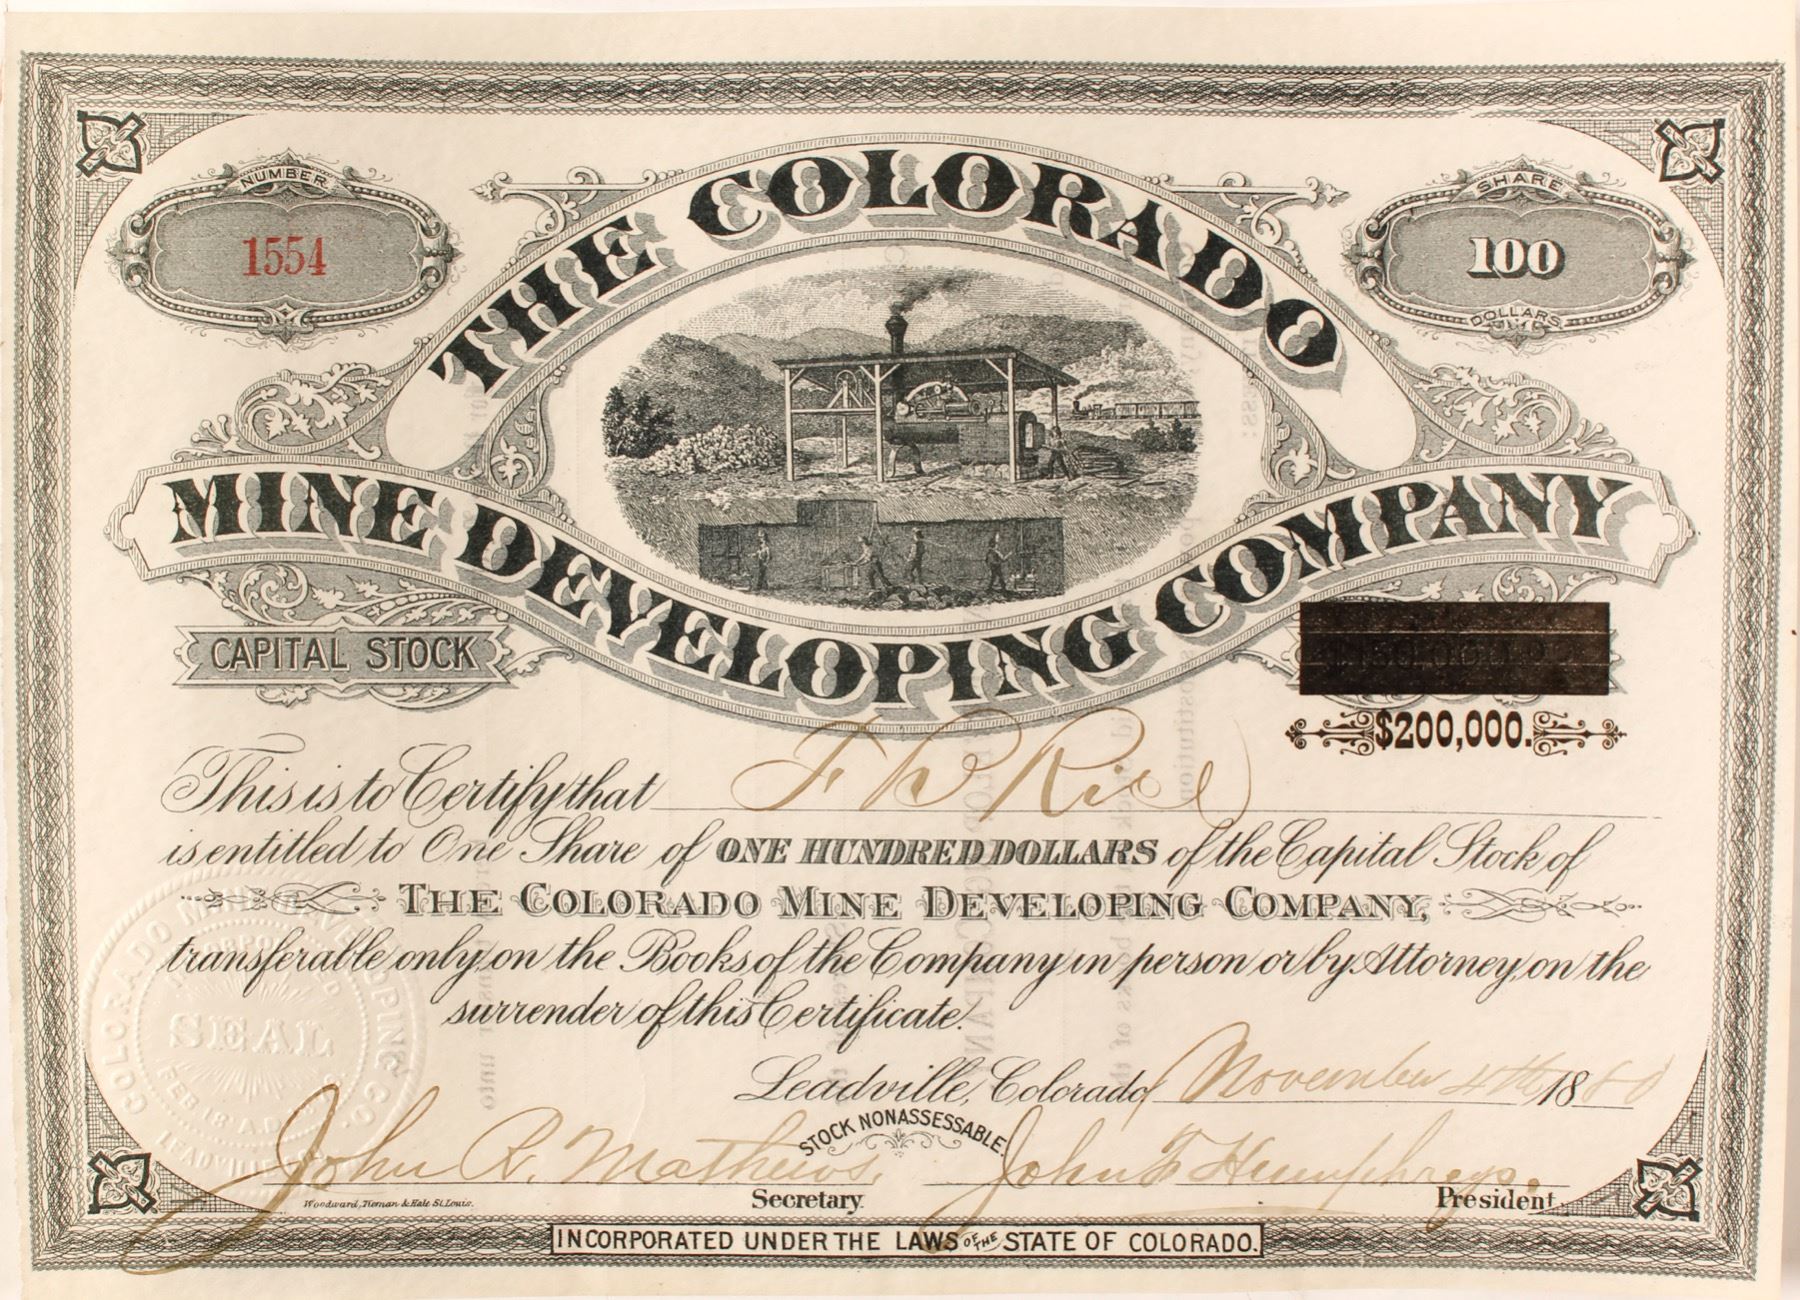 NUMBER
1554
SHARE
100
DOLLARS
THE COLORADO
MINE DEVELOPING COMPANY
CAPITAL STOCK
$200,000.
This is to Certify that F D Rice
is entitled to One Share of ONE HUNDRED DOLLARS of the Capital Stock of
THE COLORADO MINE DEVELOPING COMPANY,
transferable only on the Books of the Company in person or by Attorney, on the
surrender of this Certificate.
Leadville, Colorado, November 4th 1880
STOCK NONASSESSABLE.
John R. Mathews. Secretary.
John F Humphreys. President.
Woodward, Tiernan & Hale St. Louis.
INCORPORATED UNDER THE LAWS OF THE STATE OF COLORADO.
COLORADO MINE DEVELOPING CO.
INCORPORATED
SEAL
FEB. 18 A.D.
LEADVILLE